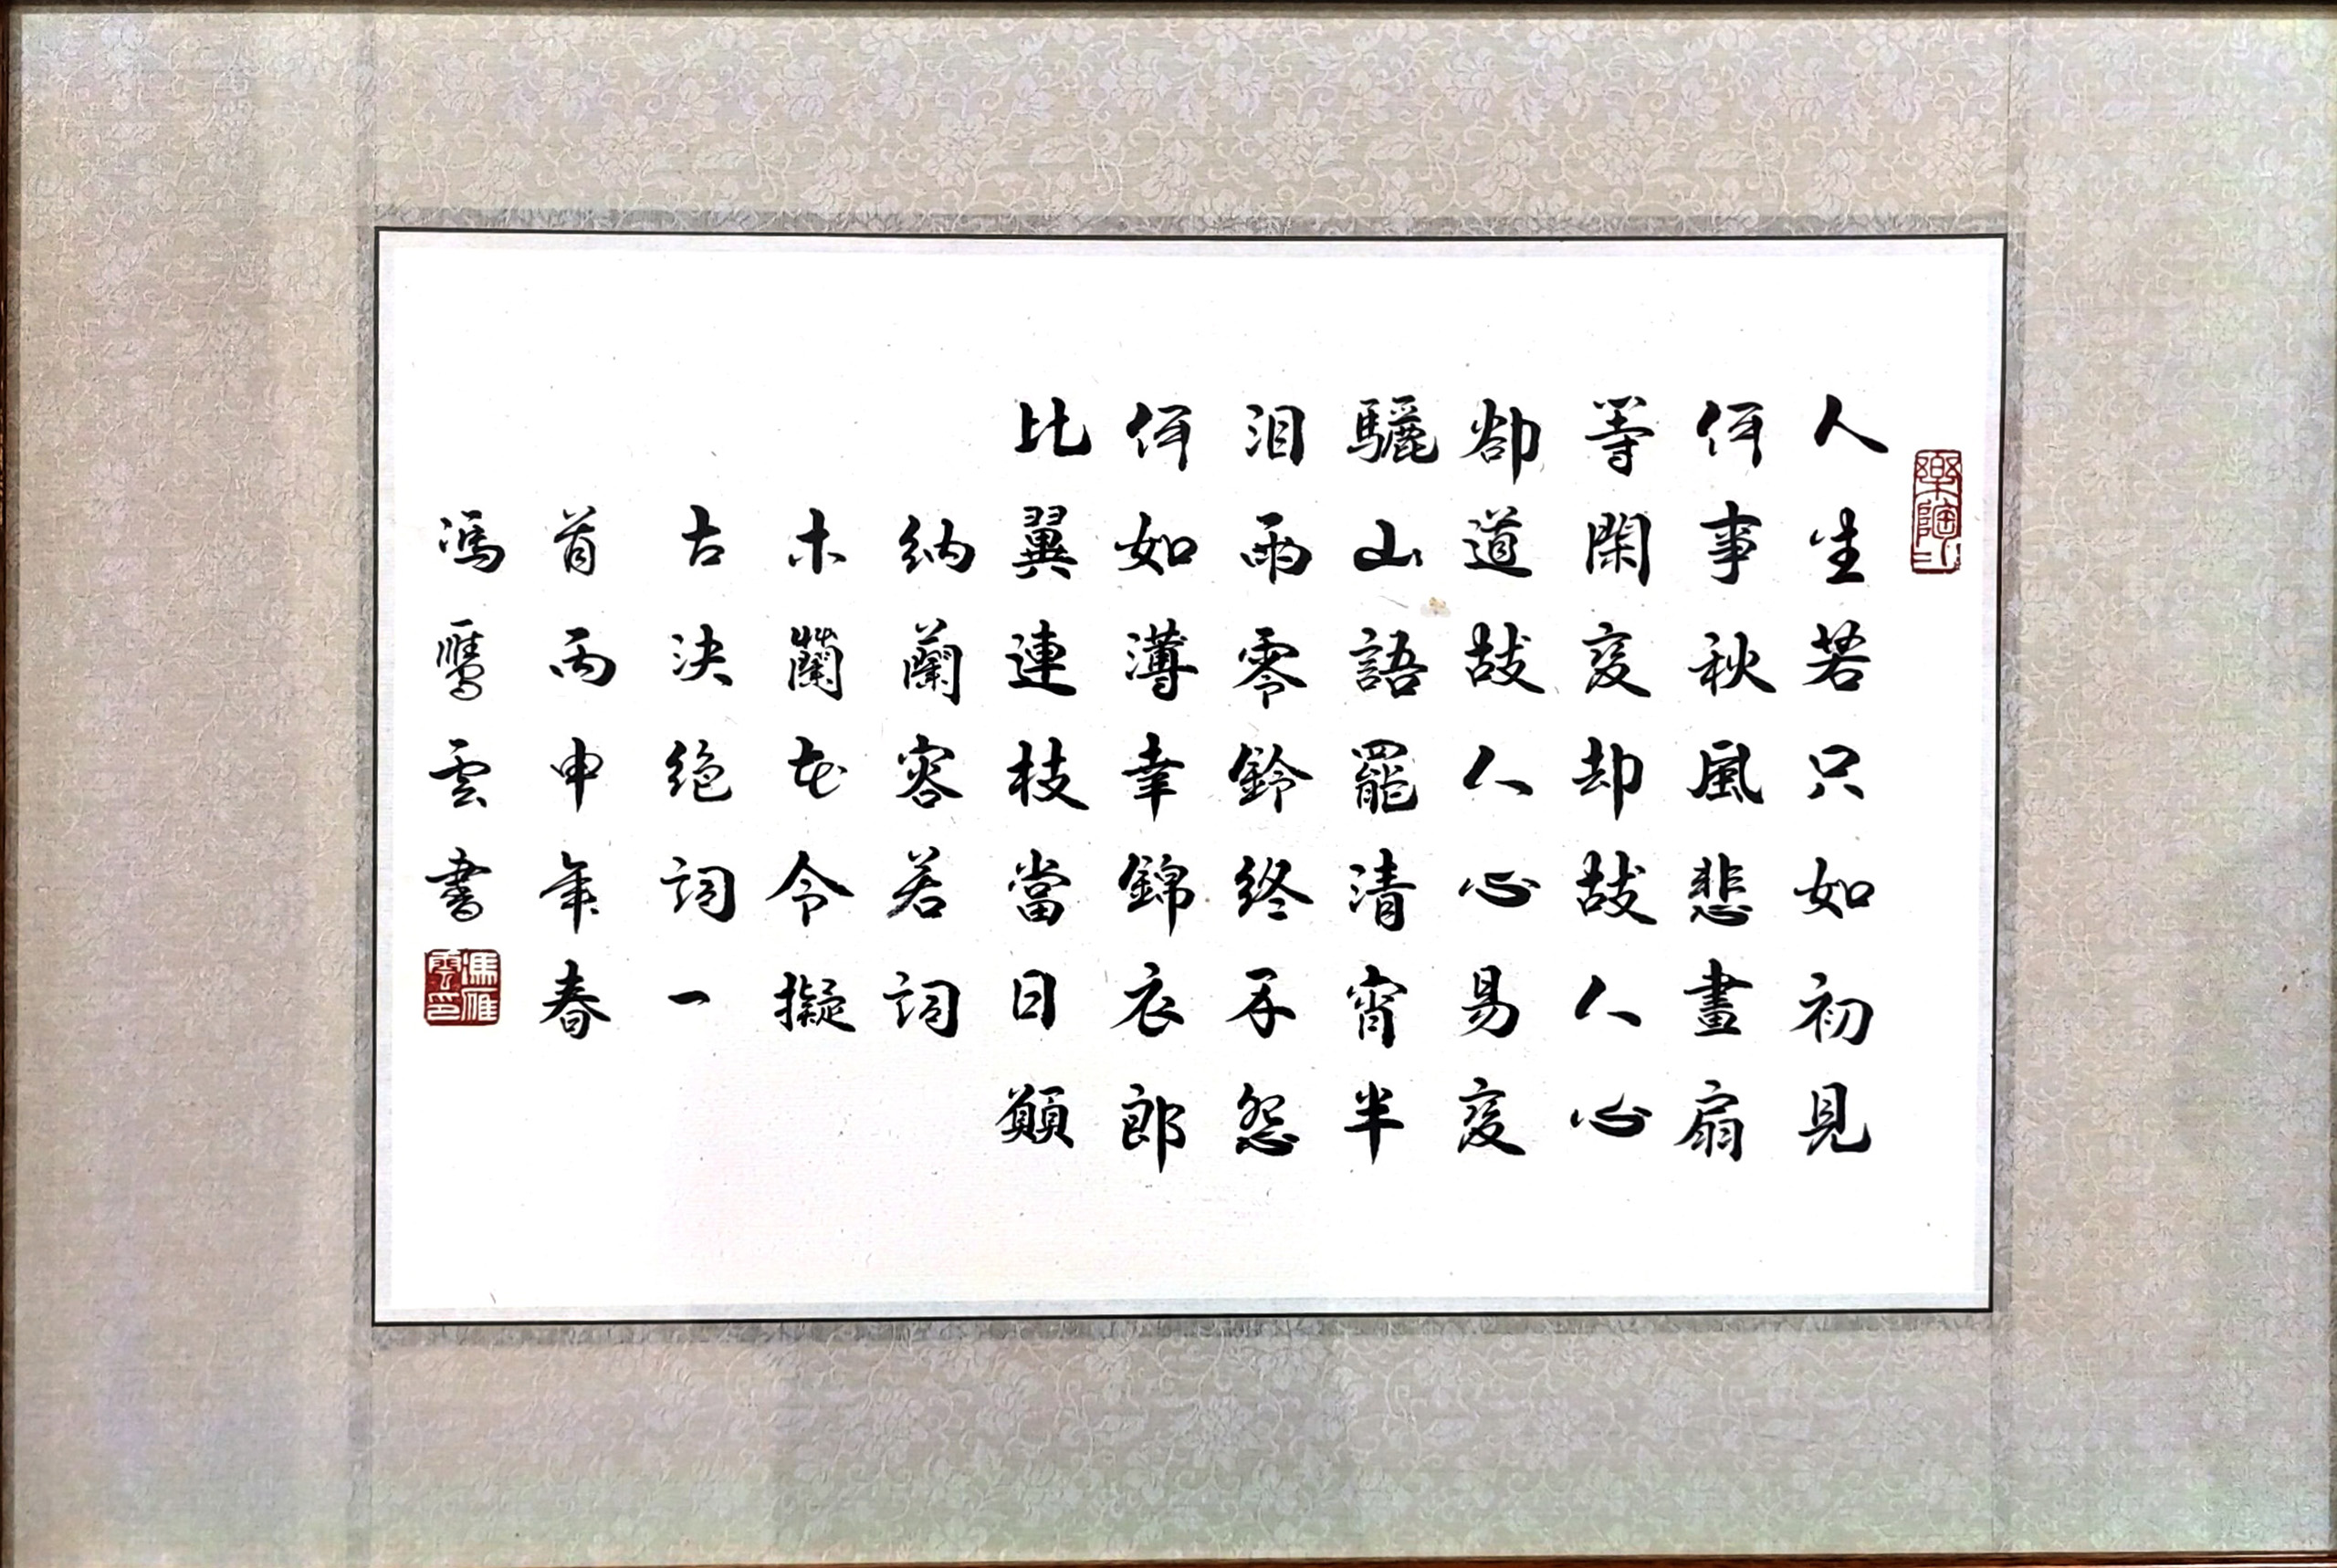 樂陶陶
人生若只如初見
何事秋風悲畫扇
等閑変却故人心
卻道故人心易変
驪山語罷清宵半
泪雨零鈴終不怨
何如薄幸錦衣郎
比翼連枝當日願
納蘭容若詞
木蘭花令擬
古決絕詞一
首丙申年春
馮鴈雲書
馮雁雲印